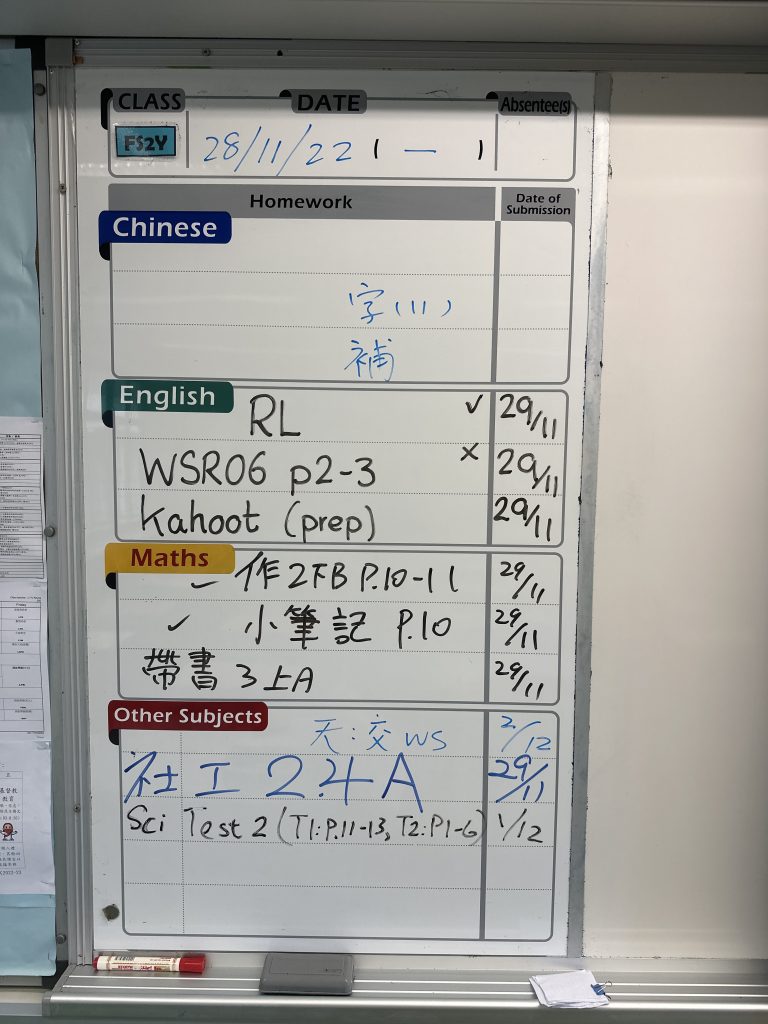 CLASS DATE Absentee(s)
FS2Y 28/11/22 1 — 1
Homework Date of Submission
Chinese
字(11)
補
English
RL ✓ 29/11
WSR06 p2-3 × 29/11
Kahoot (prep) 29/11
Maths
✓ 作2下B P.10-11 29/11
✓ 小筆記 P.10 29/11
帶書 3上A 29/11
Other Subjects
天:交 WS 2/12
社工 2.4A 29/11
Sci Test 2 (T1:P.11-13, T2:P1-6) 1/12